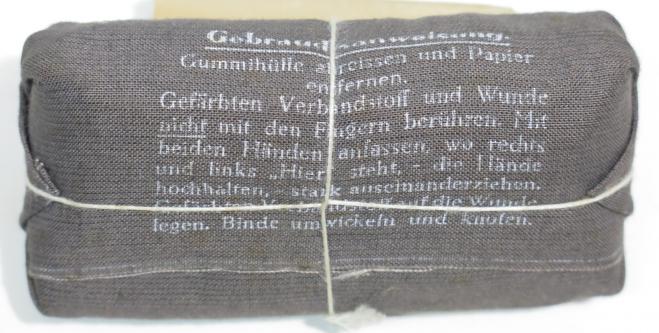 Gebrauchsanweisung.
Gummihülle abreissen und Papier
entfernen.
Gefärbten Verbandstoff und Wunde
nicht mit den Fingern berühren. Mit
beiden Händen anfassen, wo rechts
und links „Hier" steht, - die Hände
hochhalten, - stark auseinanderziehen.
Gefärbten Verbandstoff auf die Wunde
legen. Binde umwickeln und knoten.